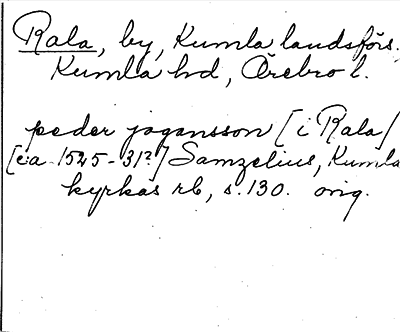 Rala, by, Kumla landsförs.
Kumla hd, Örebro l.
peder jogansson [i Rala]
[ca 1545-31?] Samzelius, Kumla
kyrkas rb, s. 130. orig.